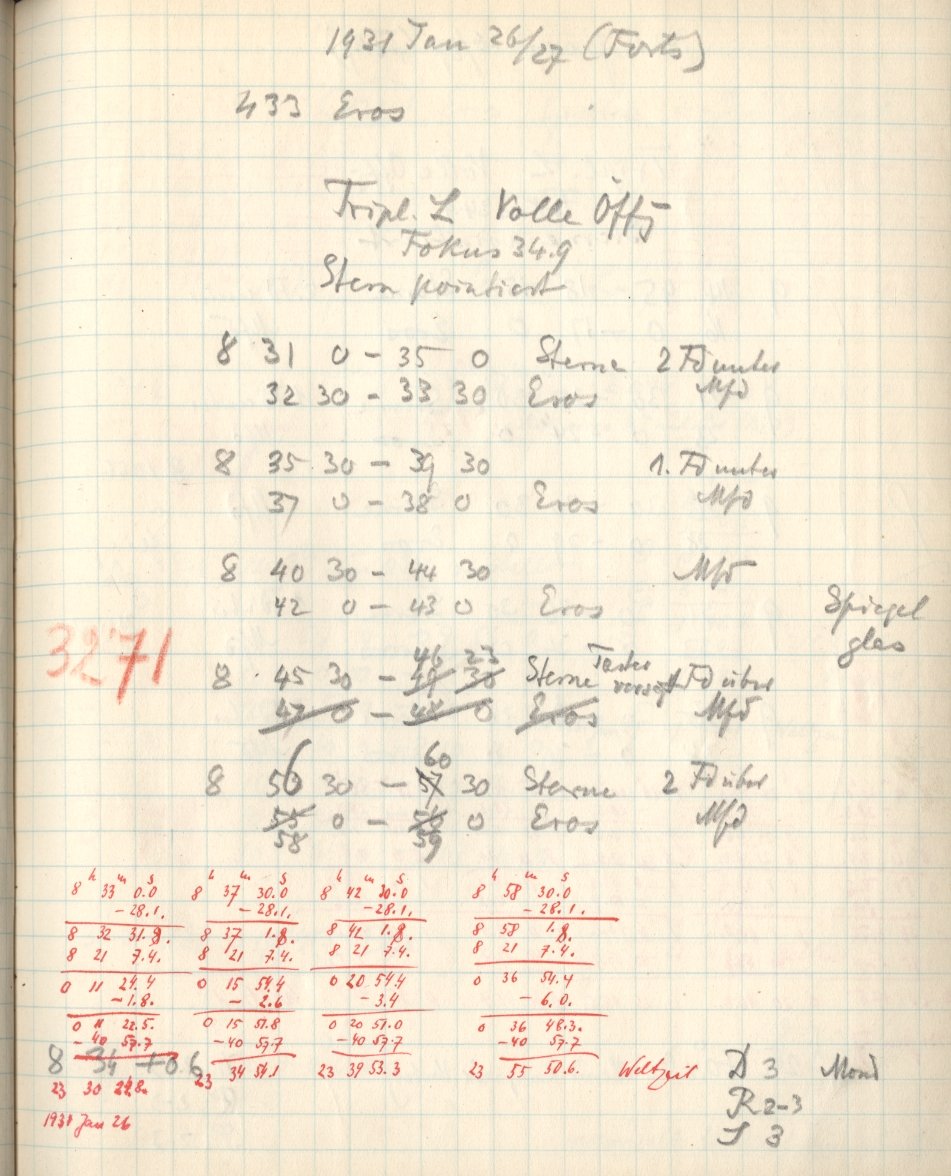 1931 Jan 26/27 (Forts)
433 Eros
Tripl. L Volle Öffg
Fokus 34.9
Stern pointiert
8 31 0 – 35 0 Sterne 2 Fd unter
32 30 – 33 30 Eros Mfd
8 35 30 – 39 30 1. Fd unter
37 0 – 38 0 Eros Mfd
8 40 30 – 44 30 Mfd
42 0 – 43 0 Eros Spiegel
glas
3271
46 23
8 45 30 – 49 30 Sterne Taster 1 Fd über
47 0 – 48 0 Eros Mfd
60
8 56 30 – 57 30 Sterne 2 Fd über
55 0 – 56 0 Eros Mfd
58 59
h m s h m s h m s h m s
8 33 0.0 8 37 30.0 8 42 30.0 8 58 30.0
– 28.1. – 28.1. – 28.1. – 28.1.
8 32 31.9. 8 37 1.9. 8 42 1.9. 8 58 1.9.
8 21 7.4. 8 21 7.4. 8 21 7.4. 8 21 7.4.
0 11 24.4 0 15 54.4 0 20 54.4 0 36 54.4
– 1.8. – 2.6 – 3.4 – 6.0.
0 11 22.5. 0 15 51.8 0 20 51.0 0 36 48.3.
– 40 57.7 – 40 57.7 – 40 57.7 – 40 57.7
8 34 +0.6 23 34 54.1 23 39 53.3 23 55 50.6. Weltzeit D 3 Mond
23 30 24.8.
R 2-3
1931 Jan 26
S 3